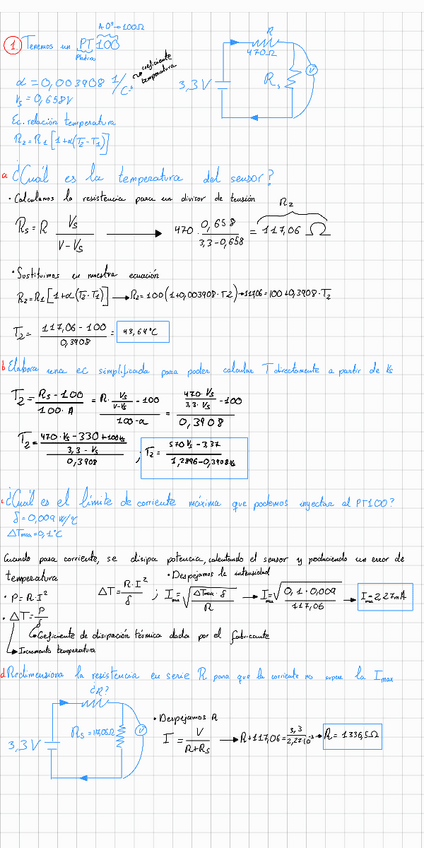 A 0° → 100Ω
① Tenemos un PT100
Platino
α = 0,003908 1/C° → coeficiente temperatura
Vs = 0,658V
Ec. relación temperatura
R₂ = R₁[1+α(T₂-T₁)]
R
470Ω
3,3V
Rs
V
a ¿Cuál es la temperatura del sensor?
• Calculamos la resistencia para un divisor de tensión
Rs = R Vs/(V-Vs) → 470 · 0,658/(3,3-0,658) = 117,06 Ω
R₂
• Sustituimos en nuestra ecuación
R₂ = R₁[1+α(T₂-T₁)] → R₂ = 100(1+0,003908·T₂) → 117,06 = 100+0,3908·T₂
T₂ = (117,06-100)/0,3908 = 43,64°C
b Elabora una ec simplificada para poder calcular T directamente a partir de Vs
T₂ = (Rs-100)/(100·A) = (R·Vs/(V-Vs) - 100)/(100·α) = (470·Vs/(3,3-Vs) - 100)/0,3908
T₂ = ((470·Vs-330+100Vs)/(3,3-Vs))/0,3908 ; T₂ = (570Vs-330)/(1,2896-0,3908Vs)
c ¿Cuál es el límite de corriente máxima que podemos inyectar al PT100?
δ = 0,009 W/°C
ΔTmax = 0,1°C
Cuando pasa corriente, se disipa potencia, calentando el sensor y produciendo un error de
temperatura
• Despejamos la intensidad
• P = R·I²
ΔT = R·I²/δ ; Imax = √(ΔTmax·δ/R) → I = √(0,1·0,009/117,06) → Imax = 2,77mA
• ΔT = P/δ
→ Coeficiente de disipación térmica dada por el fabricante
→ Incremento temperatura
d Redimensiona la resistencia en serie R para que la corriente no supere la Imax
¿R?
3,3V
Rs = 117,06Ω
V
• Despejamos R
I = V/(R+Rs) → R+117,06 = 3,3/(2,27·10⁻³) → R = 1336,5Ω